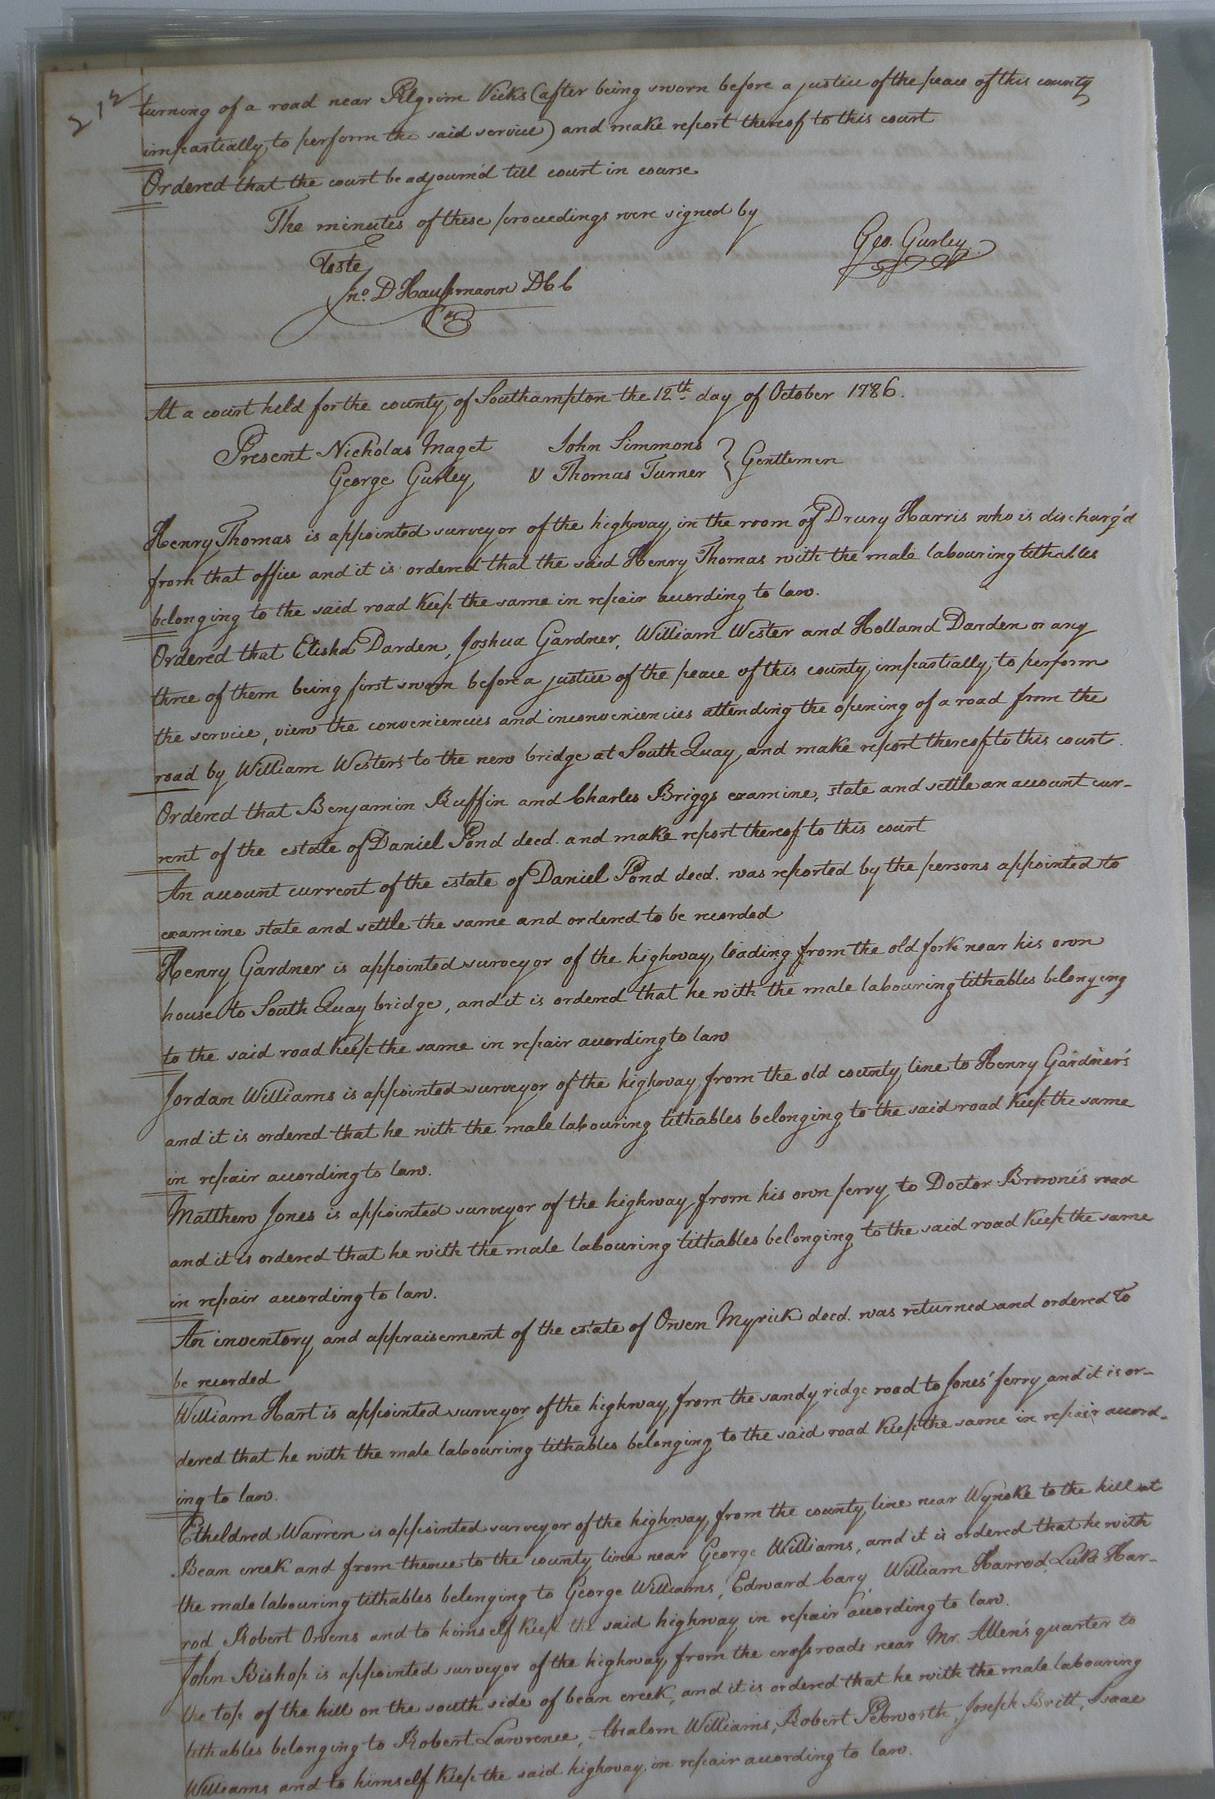 212
turning of a road near Pilgrim Vicks (after being sworn before a justice of the peace of this county
impartially to perform the said service) and make report thereof to this court
Ordered that the court be adjourn'd till court in course
The minutes of these proceedings were signed by
Geo. Gurley
Teste
Jno. D Haussmann DCC
At a court held for the county of Southampton the 12th day of October 1786.
Present Nicholas Maget John Simmons } Gentlemen
George Gurley & Thomas Turner
Henry Thomas is appointed surveyor of the highway in the room of Drury Harris who is discharg'd
from that office and it is ordered that the said Henry Thomas with the male labouring tithables
belonging to the said road keep the same in repair according to law.
Ordered that Elisha Darden, Joshua Gardner, William Wester and Holland Darden or any
three of them being first sworn before a justice of the peace of this county impartially to perform
the service, view the conveniencies and inconveniencies attending the opening of a road from the
road by William Westers to the new bridge at South Quay and make report thereof to this court.
Ordered that Benjamin Ruffin and Charles Briggs examine, state and settle an account cur-
rent of the estate of Daniel Pond decd. and make report thereof to this court
An account current of the estate of Daniel Pond decd. was reported by the persons appointed to
examine state and settle the same and ordered to be recorded
Henry Gardner is appointed surveyor of the highway leading from the old fork near his own
house to South Quay bridge, and it is ordered that he with the male labouring tithables belonging
to the said road keep the same in repair according to law
Jordan Williams is appointed surveyor of the highway from the old county line to Henry Gardner's
and it is ordered that he with the male labouring tithables belonging to the said road keep the same
in repair according to law.
Matthew Jones is appointed surveyor of the highway from his own ferry to Doctor Brown's road
and it is ordered that he with the male labouring tithables belonging to the said road keep the same
in repair according to law.
An inventory and appraisement of the estate of Owen Myrick decd. was returned and ordered to
be recorded
William Hart is appointed surveyor of the highway from the sandy ridge road to Jones' ferry and it is or-
dered that he with the male labouring tithables belonging to the said road keep the same in repair accord-
ing to law.
Etheldred Warren is appointed surveyor of the highway from the county line near Wynoke to the hill at
Bean creek and from thence to the county line near George Williams, and it is ordered that he with
the male labouring tithables belonging to George Williams, Edward Cary, William Harrod, Luke Har-
rod Robert Owens and to himself keep the said highway in repair according to law.
John Bishop is appointed surveyor of the highway from the cross roads near Mr. Allen's quarter to
the top of the hill on the south side of bean creek, and it is ordered that he with the male labouring
tithables belonging to Robert Lawrence, Absalom Williams, Robert Pebworth Joseph Britt, Isaac
Williams and to himself keep the said highway in repair according to law.